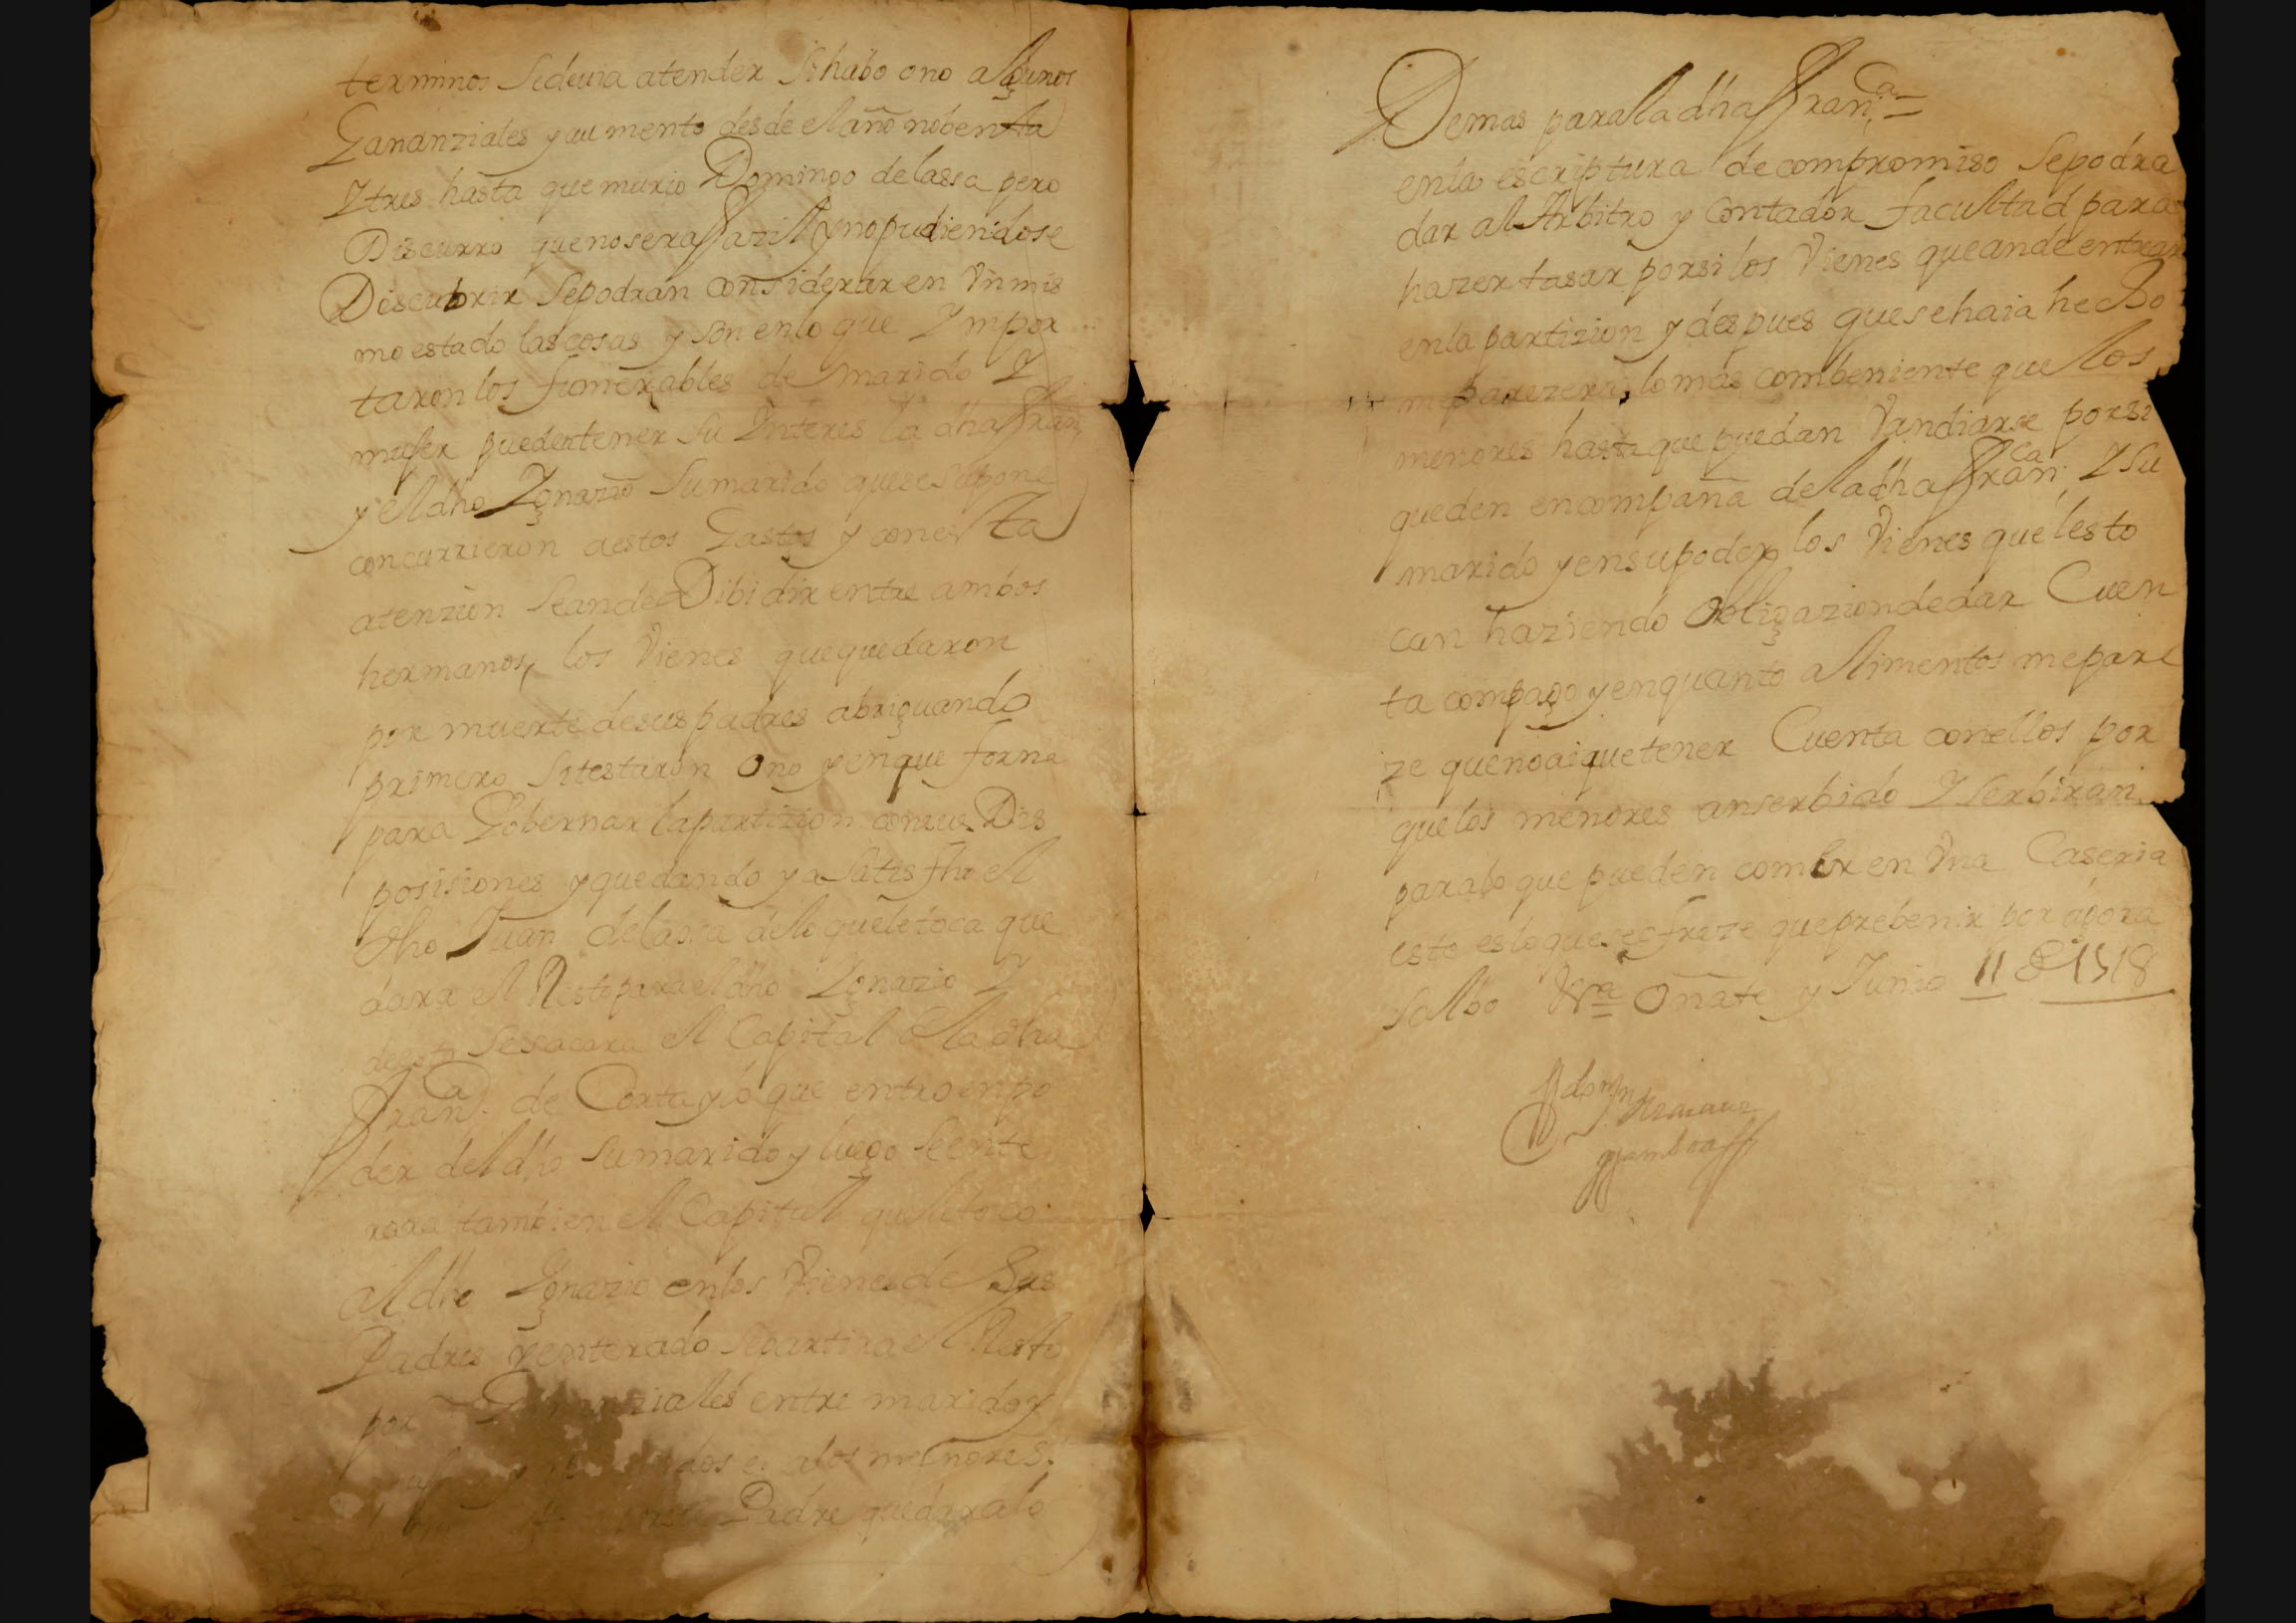 terminos Sedeuia atender Sihubo ono algunos
Gananziales y aumento desde el año nobenta
Y tres hasta que murio Domingo de lassa pero
Discurro que no sera ffazil y no pudiendose
Discubrir Sepodran considerar en Vn mis
mo estado las cosas y son en lo que Ympor
taron los funerables de marido Y
muger pueden tener su Ynteres la dha ffran
y el dho Ygnazio Su marido que se supone
concurrieron a estos Gastos y con esta
atenzion Seande Dibidir entre ambos
hermanos, los Vienes que quedaron
por muerte de sus padres abriguando
primero Sitestaron Ono y en que forma
para Gobernar la partizion con sus Dis
posisiones y quedando ya Satisfho el
dho Juan de lassa de lo que le toca que
dara el Resto para el dho Ygnazio Y
de esto Sesacara el Capital de la dha
ffran.a de Corta y lo que entro en po
der del dho Su marido y luego Seente
rara tambien el Capital que le toco
al dho Ygnazio en los Vienes de Sus
Padres y enterado Separtira el Resto
por Gananziales entre marido y
y a los menores.
Padre quedara lo
Demas para la dha ffran.ca
en la escriptura de compromiso Sepodra
dar al Arbitro y Contador facultad para
hazer tasar por si los Vienes que ande entrar
en la partizion y despues que se haia hecho
me parezera, lo mas combeniente que los
menores hasta que puedan Vandiarse por si
queden en compañia de la dha ffran.ca Y Su
marido y en su poder los Vienes que les to
can haziendo Obligazion de dar Cuen
ta com pago y en quanto alimentos me pare
ze que no ai que tener Cuenta con ellos por
que los menores an serbido Y Serbiran
para lo que pueden comer en Vna Caseria
esto es lo que se ofreze que prebenir por agora
salbo Va Oñate y Junio 11 de 1718